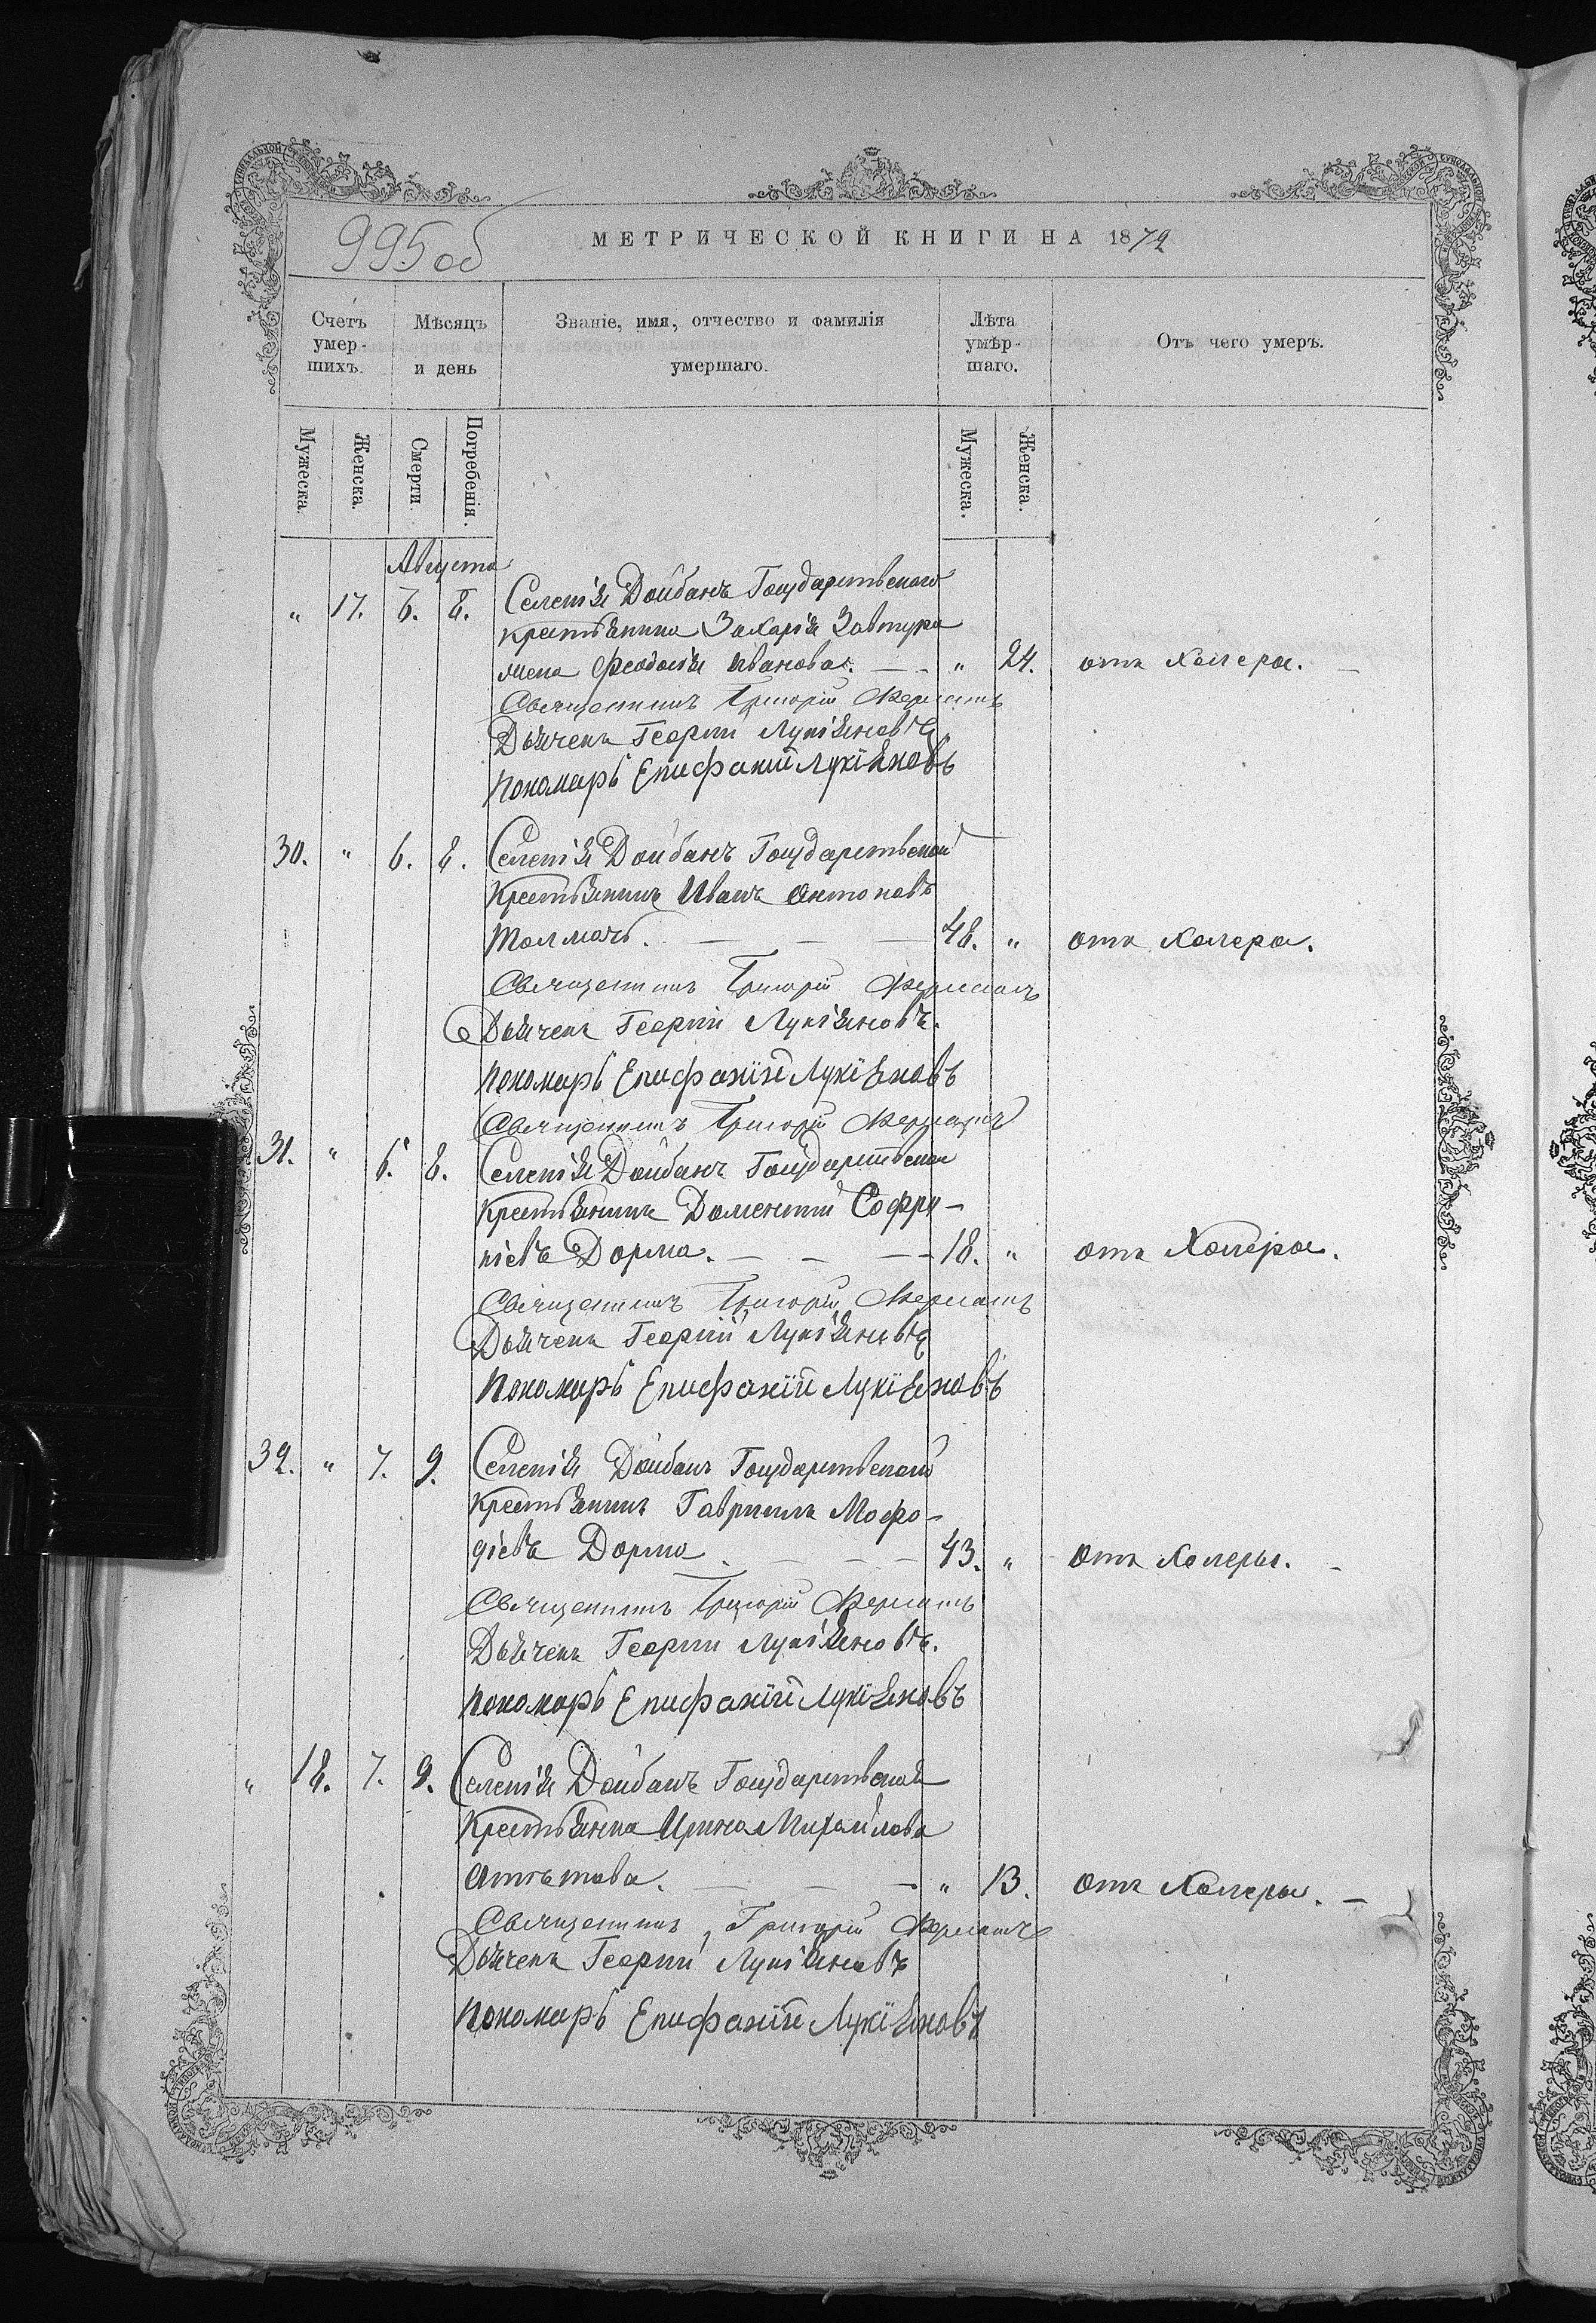 995 об
МЕТРИЧЕСКОЙ КНИГИ НА 1872
Счетъ умер-шихъ.
Мѣсяцъ и день
Званіе, имя, отчество и фамилія умершаго.
Лѣта умѣр-шаго.
Отъ чего умеръ.
Мужеска.
Женска.
Смерти.
Погребенія.
Мужеска.
Женска.
Августа
„ 17. 6. 8. Селенія Дойбанъ Государственого
крестьянина Захарія Завтура
жена Феодосія Иванова. — — „ 24. отъ холеры. —
Священникъ Григорій
Дьячекъ Георгій Лукіяновъ
Пономарь Епифаній Лукіяновъ
30. „ 6. 8. Селенія Дойбанъ Государственой
Крестьянинъ Иванъ Антоновъ
Толмачъ. — — — 48. „ отъ холеры.
Священникъ Григорій
Дьячекъ Георгій Лукіяновъ.
Пономарь Епифаній Лукіяновъ
Священникъ Григорій
31. „ 6. 8. Селенія Дойбанъ Государственой
Крестьянинъ Доментій Софро-
ніевъ Дорма. — — — 18. „ отъ Холеры.
Священникъ Григорій
Дьячекъ Георгій Лукіяновъ
Пономарь Епифаній Лукіяновъ
32. „ 7. 9. Селенія Дойбанъ Государственой
Крестьянинъ Гавриилъ Мефо-
діевъ Дорма. — — — 43. „ Отъ Холеры. —
Священникъ Григорій
Дьячекъ Георгій Лукіяновъ.
Пономарь Епифаній Лукіяновъ
„ 18. 7. 9. Селенія Дойбанъ Государственая
Крестьянка Ирина Михайлова
— — — „ 13. Отъ Холеры. —
Священникъ Григорій
Дьячекъ Георгій Лукіяновъ
Пономарь Епифаній Лукіяновъ